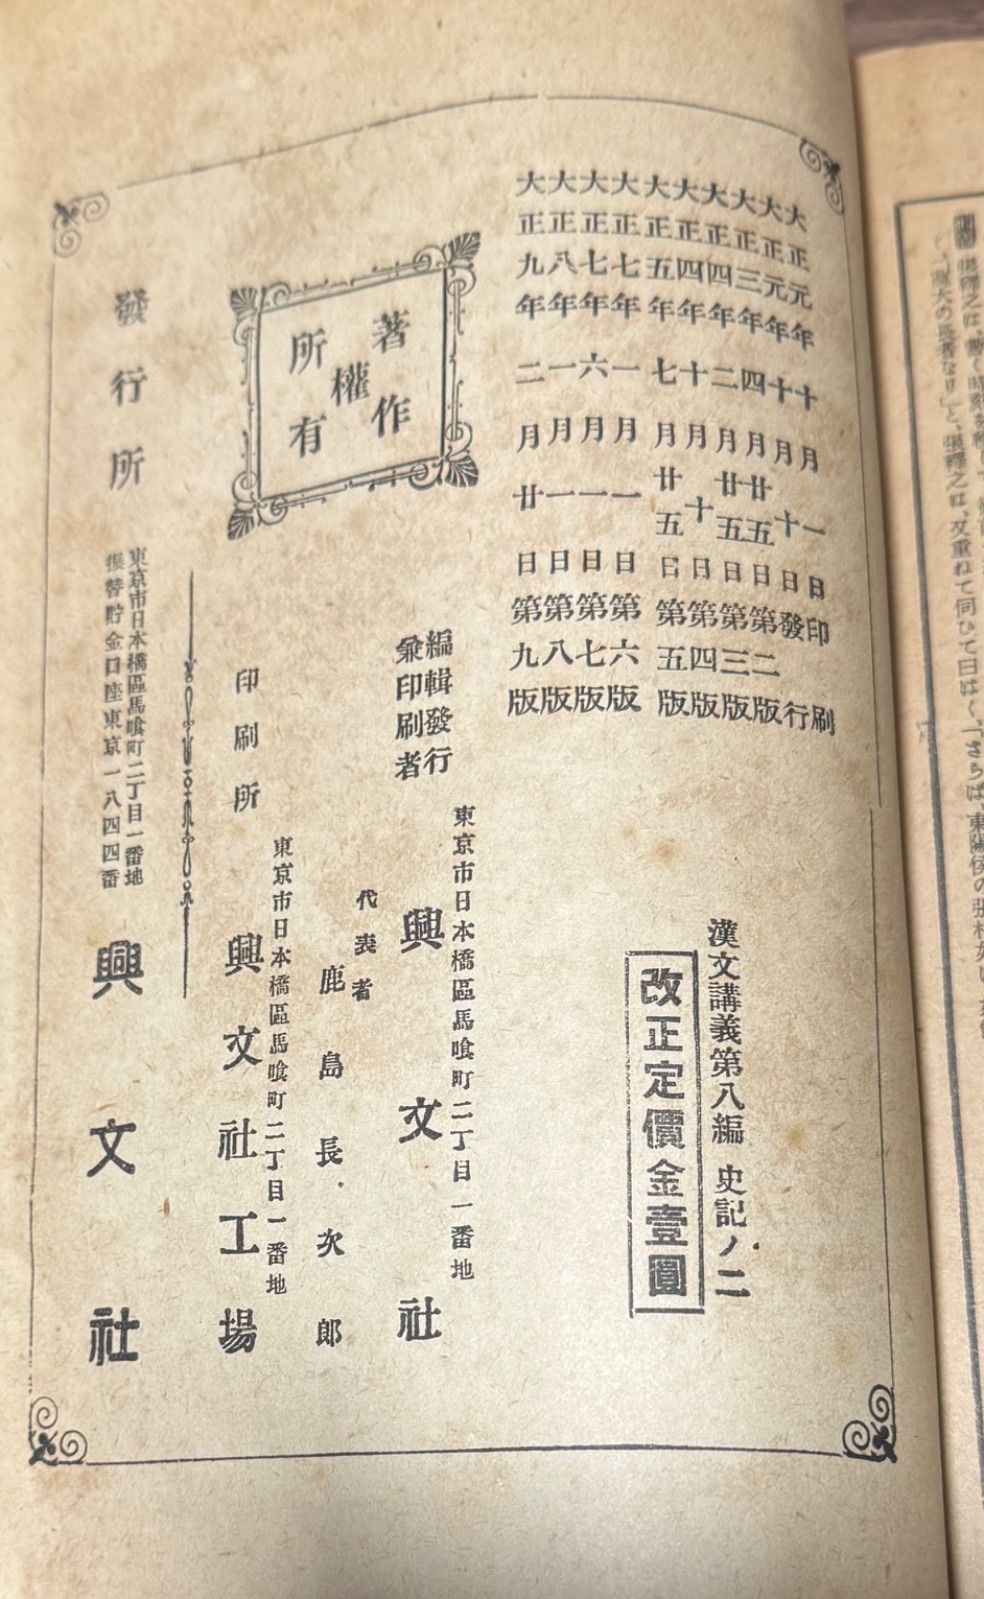 長者なり」と、張釋之は、又重ねて伺ひて曰はく、「さらば東陽侯の張相如
大正元年十月一日印刷
大正元年十月十日發行
大正三年四月廿五日第二版
大正四年二月廿五日第三版
大正四年十月十日第四版
大正五年七月廿五日第五版
大正七年一月一日第六版
大正七年六月一日第七版
大正八年一月一日第八版
大正九年二月廿日第九版
漢文講義第八編 史記ノ二
改正定價金壹圓
著作
權
所有
編輯發行
兼印刷者
東京市日本橋區馬喰町二丁目一番地
興文社
代表者
鹿島長次郎
印刷所
東京市日本橋區馬喰町二丁目一番地
興文社工場
發行所
東京市日本橋區馬喰町二丁目一番地
振替貯金口座東京一八四四番
興文社